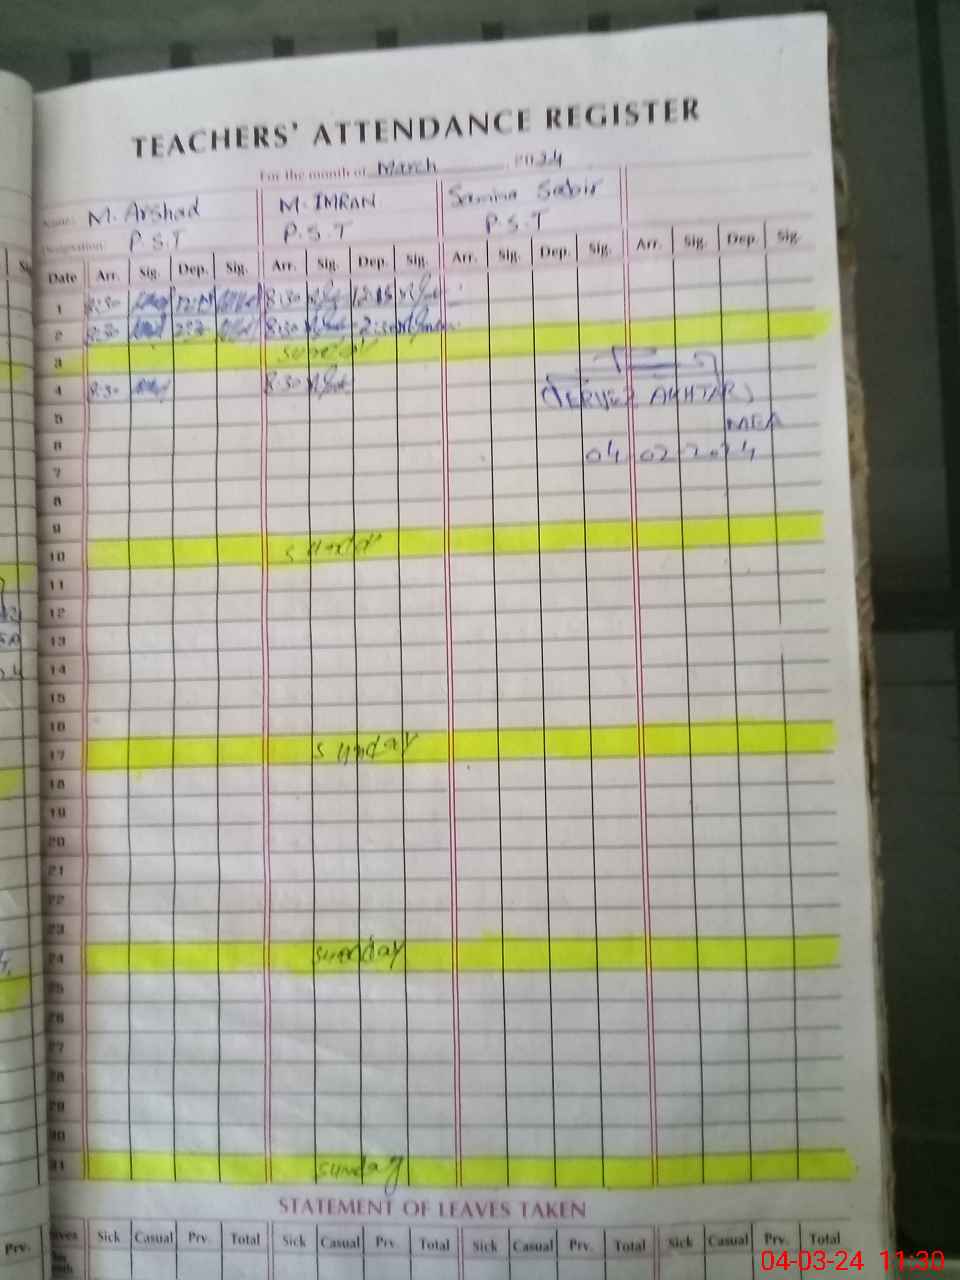 TEACHERS' ATTENDANCE REGISTER
For the month of March 2024
Name: M. Arshad M. IMRAN Samina Sabir
Designation: P.S.T P.S.T P.S.T
Date Arr. Sig. Dep. Sig. Arr. Sig. Dep. Sig. Arr. Sig. Dep. Sig. Arr. Sig. Dep. Sig.
1 8:30 8:30 12:15
2 8:30 8:30 2:30
3 sunday
4 8:30 8:30
AKHTAR)
5
MEA
6
04 02 2024
7
8
9
10 sunday
11
12
13
14
15
16
17 sunday
18
19
20
21
22
23
24 sunday
25
26
27
28
29
30
31 sunday
STATEMENT OF LEAVES TAKEN
Prv. Sick Casual Prv. Total Sick Casual Prv. Total Sick Casual Prv. Total Sick Casual Prv. Total
04-03-24 11:30